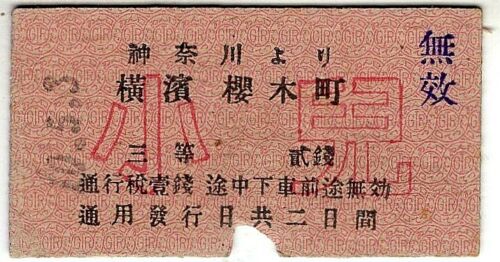 神奈川より
橫濱 櫻木町
三等 貳錢
通行税壹錢 途中下車前途無効
通用發行日共二日間
小児
無效